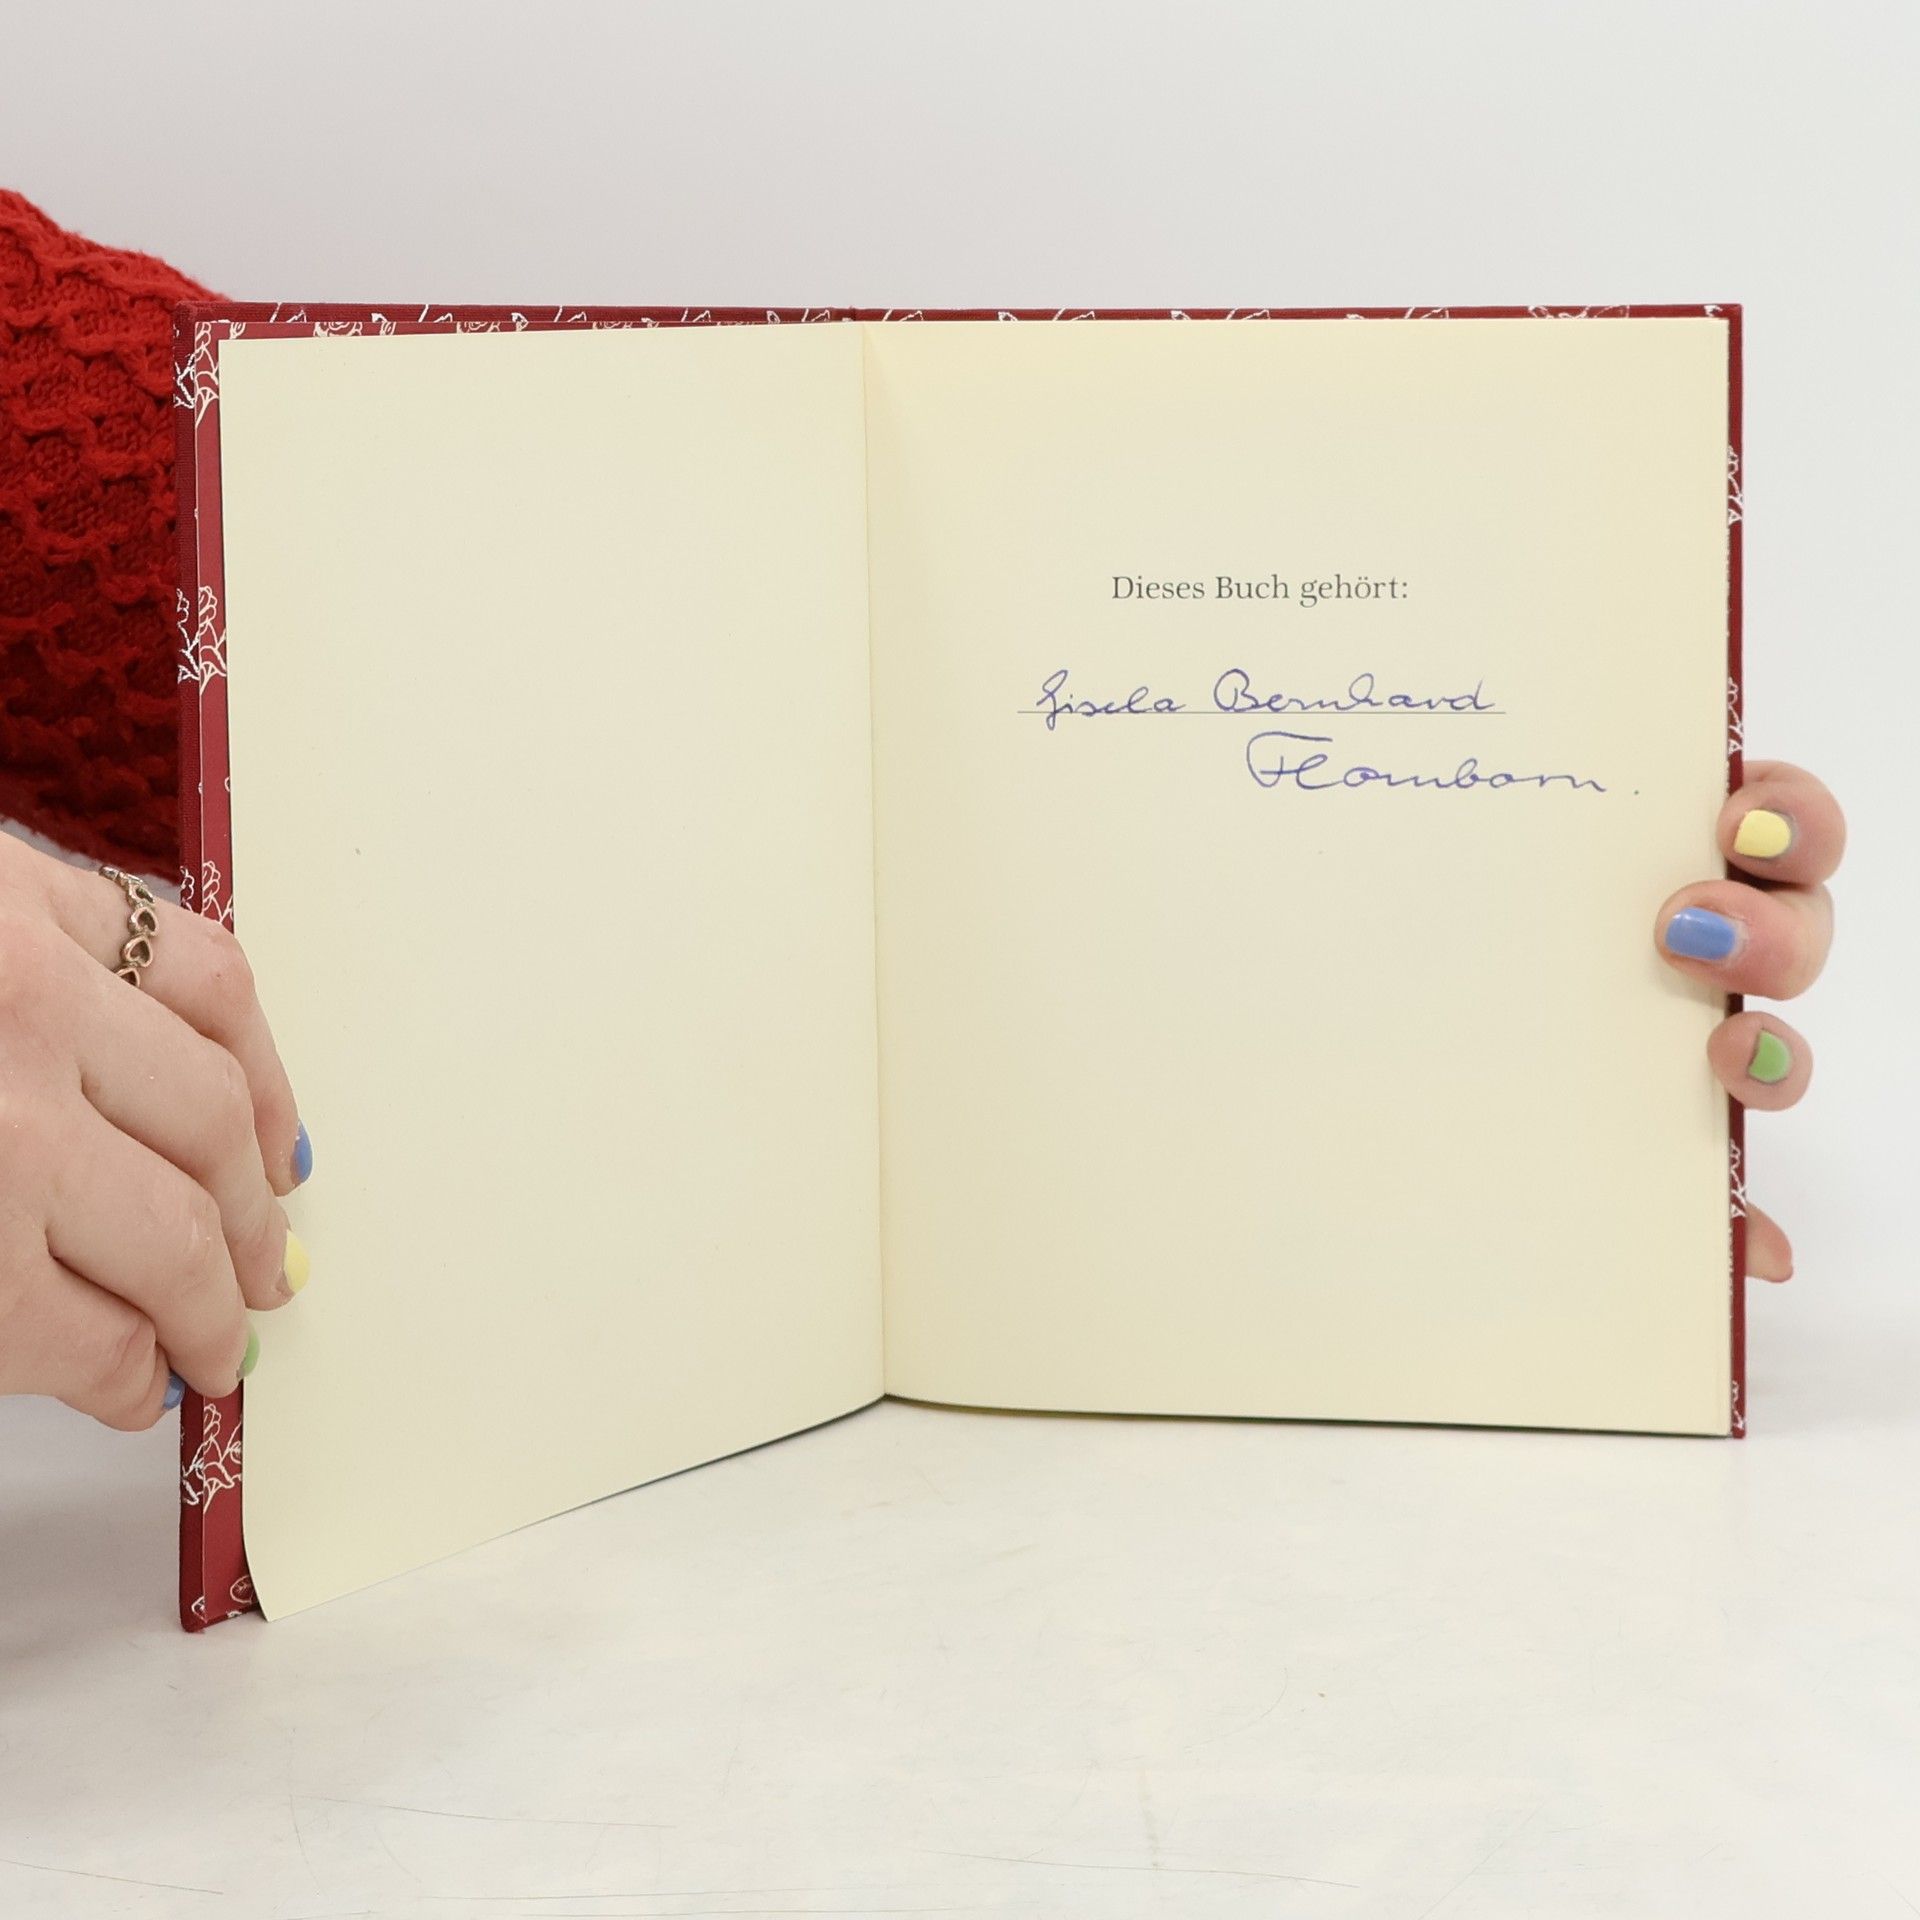 Dieses Buch gehört:
Gisela Bernhard
Flomborn.